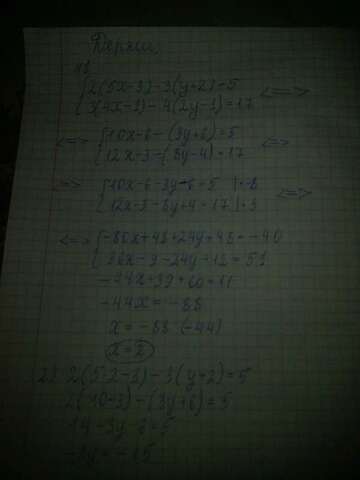 №1
{2(5x-3)-3(y+2)=5
{3(4x-1)-4(2y-1)=17 <=>
<=> {10x-6-(3y+6)=5
{12x-3-(8y-4)=17 <=>
=> {10x-6-3y-6=5 |·-8
{12x-3-8y+4=17 |·3 <=>
<=> {-80x+48+24y+48=-40
{36x-9-24y+12=51
-44x=-88
x=-88:(-44)
x=2
2) 2(5·2-3)-3(y+2)=5
2(10-3)-(3y+6)=5
14-3y-6=5